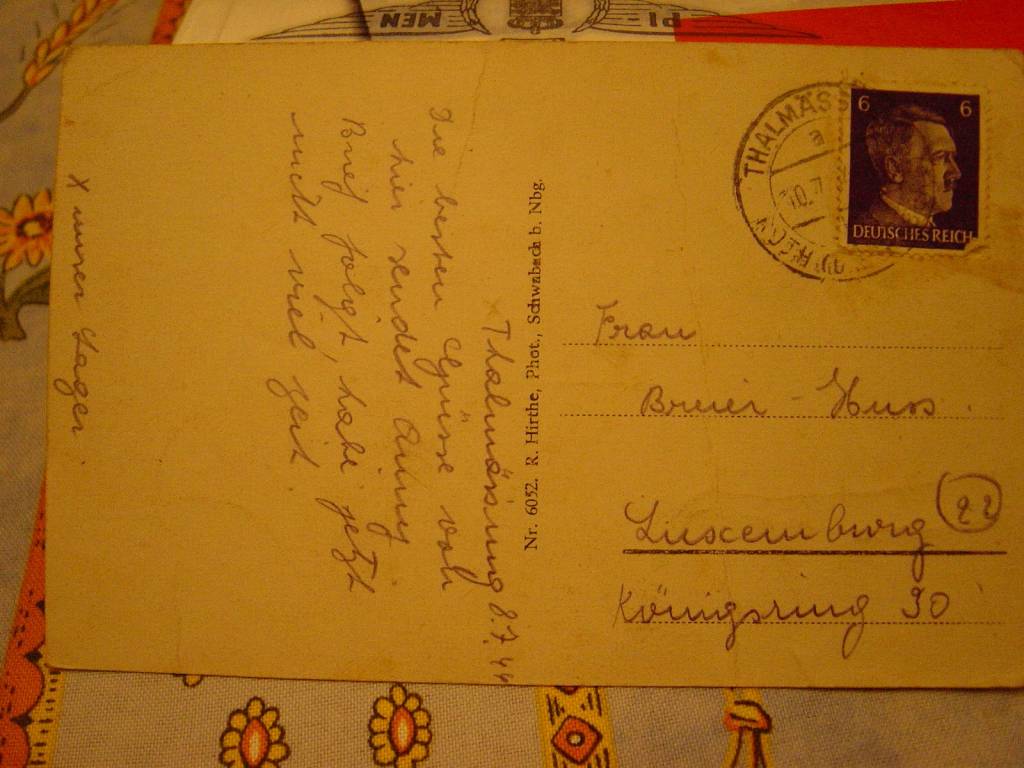 PI - MEN
Thalmässing 8.7.44
Die besten Grüsse von
hier sendet
Brief folgt, habe jetzt
nicht viel Zeit.
X unser Lager.
Nr. 6052. R. Hirthe, Phot., Schwabach b. Nbg.
THALMÄSS
a
10.7
6 6
DEUTSCHES REICH
Frau
Breier - Huss.
Luxemburg
22
Königsring 90